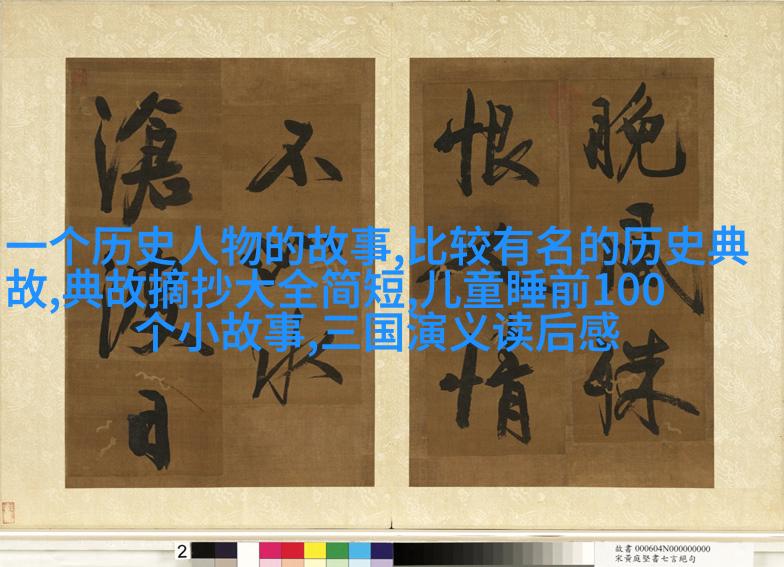 晚風
恨情
不水
滄日
一个历史人物的故事,比较有名的历史典
故,典故摘抄大全简短,儿童睡前100
个小故事,三国演义读后感
2
故書 000604N000000000
宋黃庭堅書七言絕句